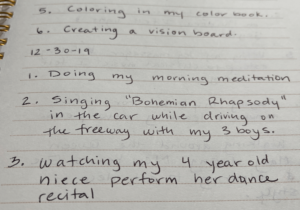 5. Coloring in my color book.
6. Creating a vision board.
12-30-19
1. Doing my morning meditation
2. Singing "Bohemian Rhapsody"
in the car while driving on
the freeway with my 3 boys.
3. Watching my 4 year old
niece perform her dance
recital